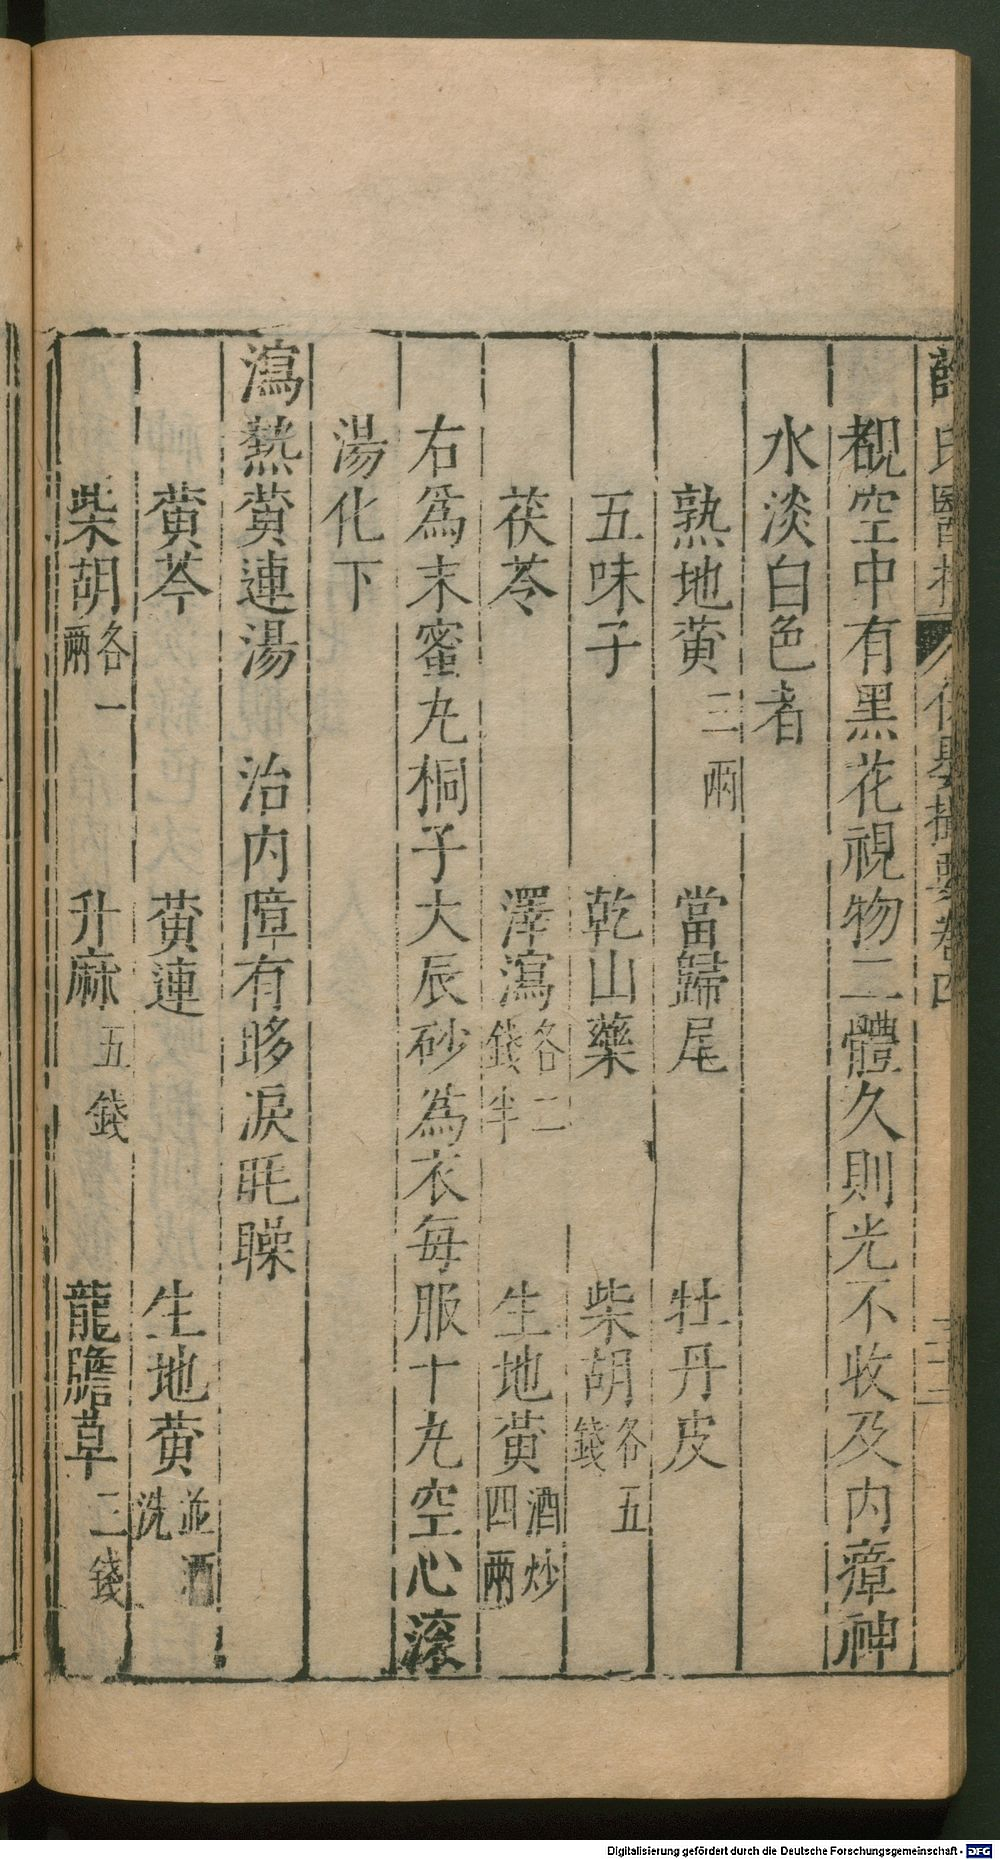 薛氏醫按 保嬰撮要卷四
覩空中有黑花視物二體久則光不收及内瘴神
水淡白色者
熟地黄三兩 當歸尾 牡丹皮
五味子 乾山藥 柴胡各五錢
茯苓 澤瀉各二錢半 生地黄酒炒四兩
右爲末蜜丸桐子大辰砂爲衣每服十丸空心滚
湯化下
瀉熱黄連湯 治内障有眵淚眊矂
黄芩 黄連 生地黄並酒洗
柴胡各一兩 升麻五錢 龍膽草三錢
Digitalisierung gefördert durch die Deutsche Forschungsgemeinschaft - DFG